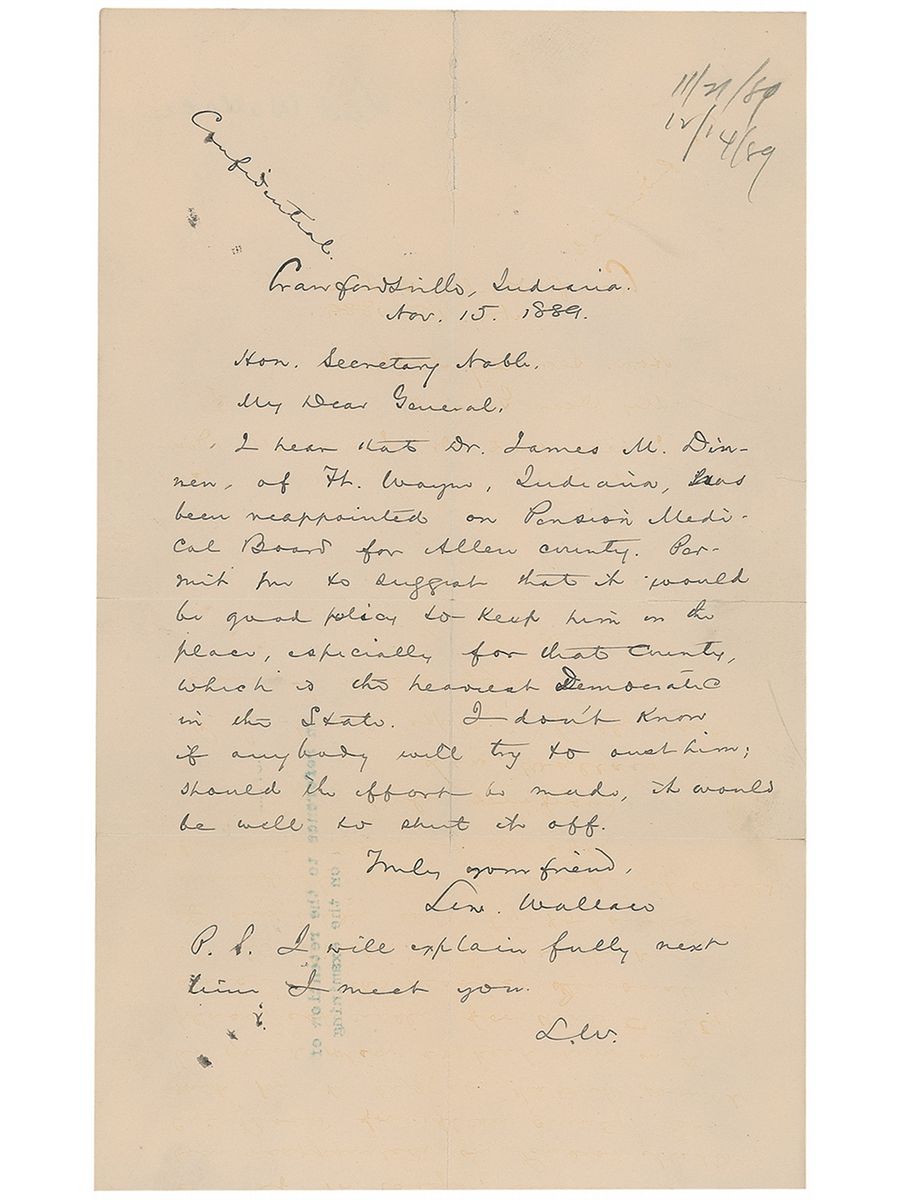 11/21/89
12/14/89
Confidential.
Crawfordsville, Indiana.
Nov. 15. 1889.
Hon. Secretary Noble.
My Dear General,
I hear that Dr. James M. Din-
nen, of Ft. Wayne, Indiana, has
been reappointed on Pension Medi-
cal Board for Allen county. Per-
mit me to suggest that it would
be good policy to keep him in the
place, especially for that County,
which is the heaviest Democratic
in the State. I don't know
if anybody will try to oust him;
should the effort be made, it would
be well to shut it off.
Truly your friend,
Lew. Wallace
P. S. I will explain fully next
time I meet you.
L.W.
on the examining
in reference to the retention of